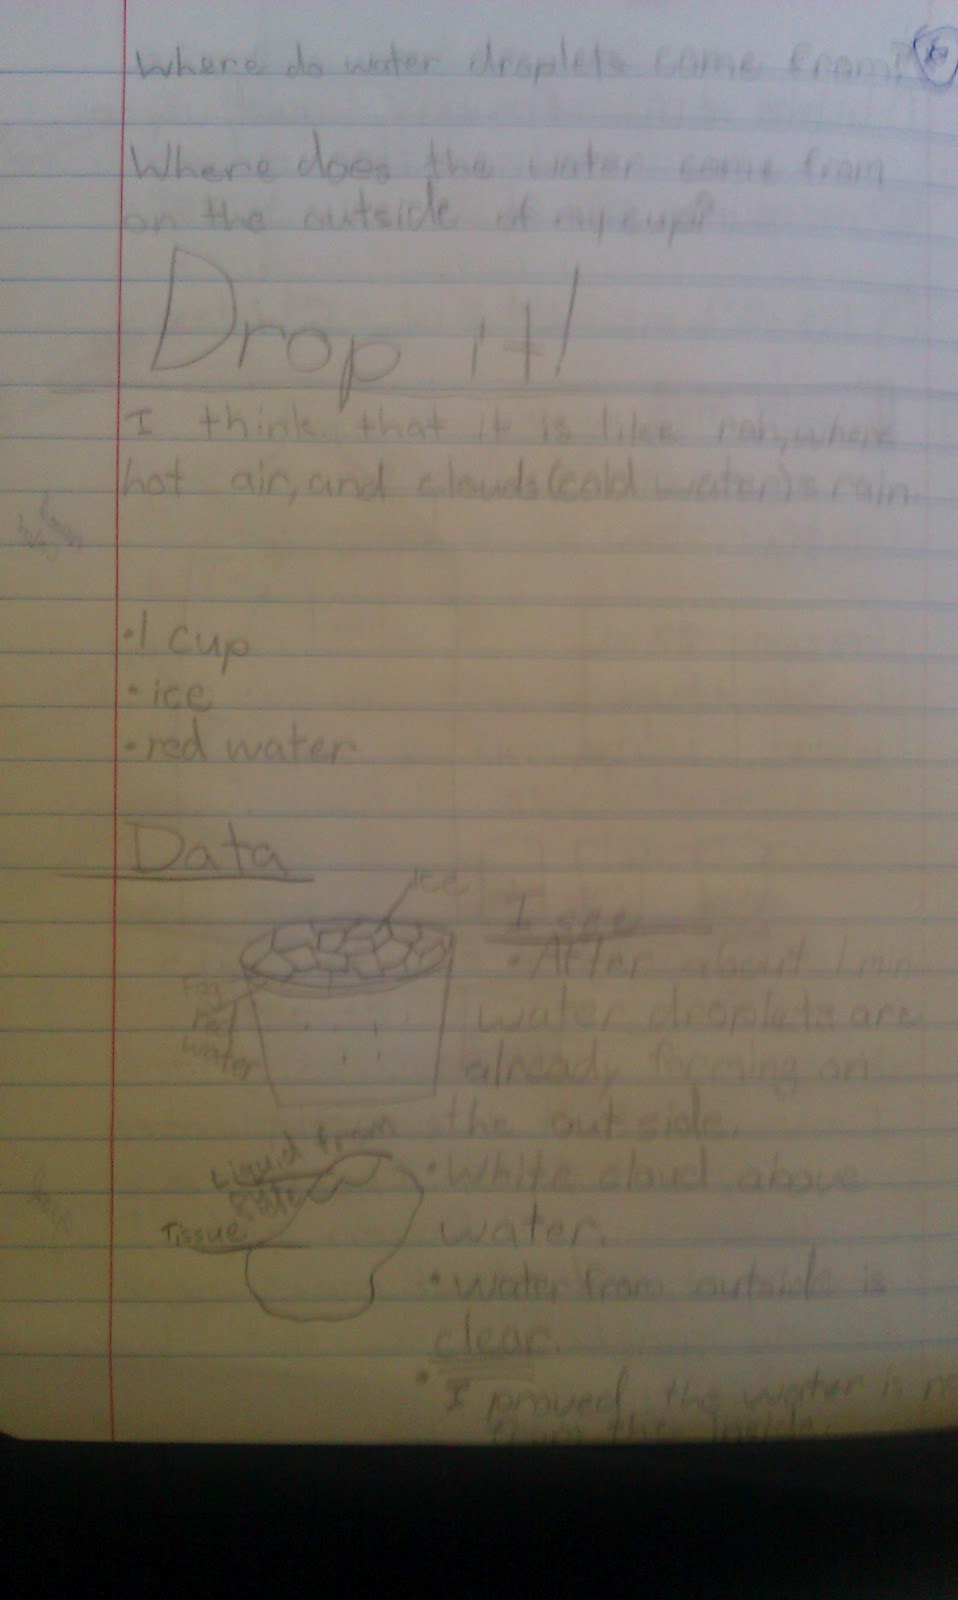 Where do water droplets come from?
Where does the water come from
on the outside of my cup?
Drop it!
I think that it is like rain, where
hot air, and clouds (cold water) = rain.
• 1 cup
• ice
• red water
Data
ice
I see
• After about 1 min
water droplets are
already forming on
the outside.
Red
water
Liquid from
Tissue
• White cloud above
water.
• water from outside is
clear.
• I proved the water is
from the inside.